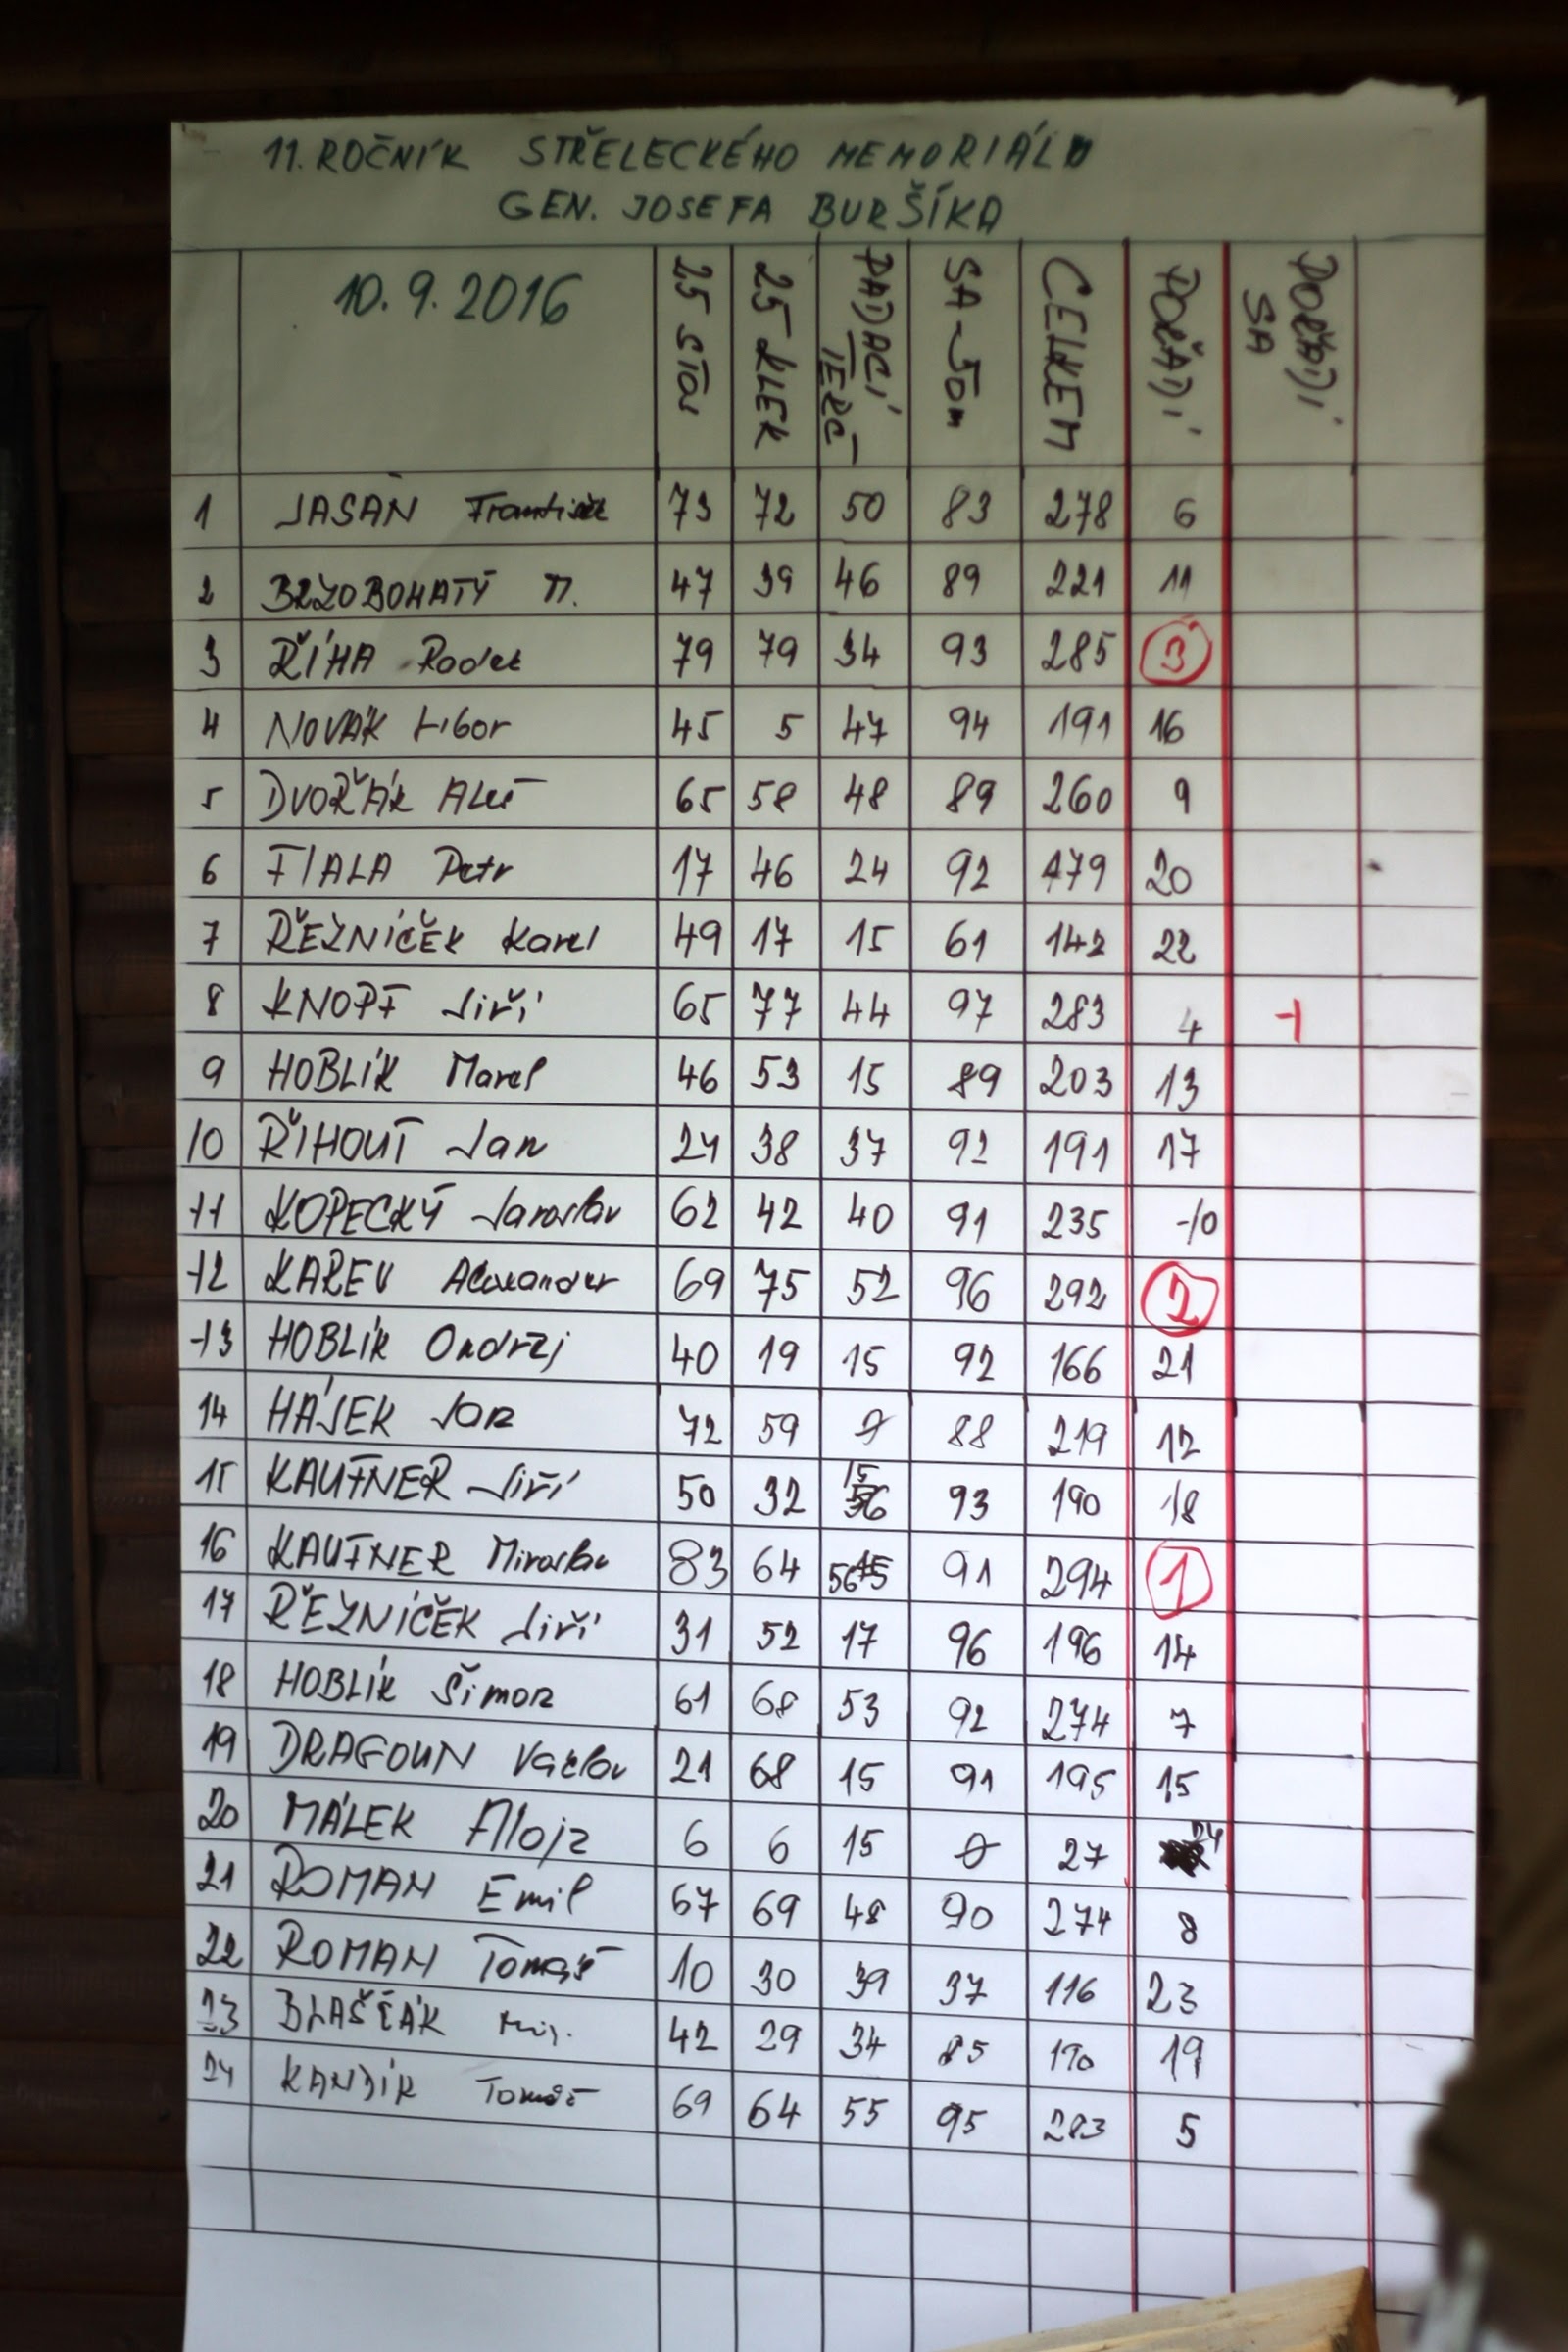 11. ROČNÍK STŘELECKÉHO MEMORIÁLU
GEN. JOSEFA BURŠÍKA
10.9.2016 25 STOJ 25 KLEK PADACÍ TERČ SA-50m CELKEM POŘADÍ POŘADÍ SA
1 JASAŇ František 73 72 50 83 278 6
2 BRZOBOHATÝ M. 47 39 46 89 221 11
3 ŘÍHA Radek 79 79 34 93 285 3
4 NOVÁK Libor 45 5 47 94 191 16
5 DVOŘÁK Aleš 65 58 48 89 260 9
6 FIALA Petr 17 46 24 92 179 20
7 ŘEZNÍČEK Karel 49 17 15 61 142 22
8 KNOPF Jiří 65 77 44 97 283 4 1
9 HOBLÍK Marel 46 53 15 89 203 13
10 ŘIHOUT Jan 24 38 37 92 191 17
11 KOPECKÝ Jaroslav 62 42 40 91 235 10
12 KAREV Alexander 69 75 52 96 292 2
13 HOBLÍK Ondřej 40 19 15 92 166 21
14 HÁJEK Jan 72 59 0 88 219 12
15 KAUFNER Jiří 50 32 15 93 190 18
16 KAUFNER Miroslav 83 64 56 91 294 1
17 ŘEZNÍČEK Jiří 31 52 17 96 196 14
18 HOBLÍK Šimon 61 68 53 92 274 7
19 DRAGOUN Václav 21 68 15 91 195 15
20 MÁLEK Alojz 6 6 15 0 27 24
21 ROMAN Emil 67 69 48 90 274 8
22 ROMAN Tomáš 10 30 39 37 116 23
23 BLAŠČÁK 42 29 34 85 190 19
24 KANDÍK Tomáš 69 64 55 95 283 5